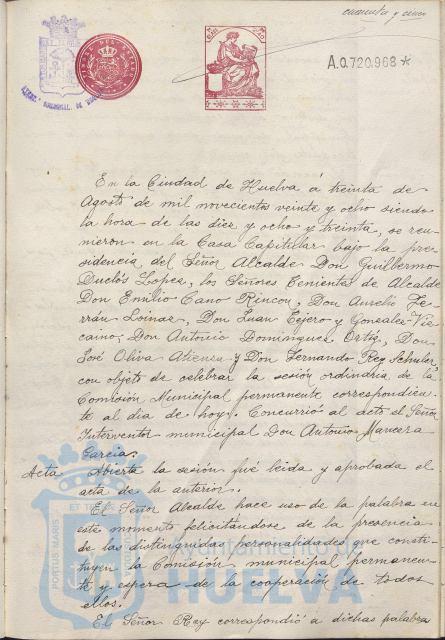 cuarenta y cinco
A.0.720.968*
En la Ciudad de Huelva á treinta de
Agosto de mil novecientos veinte y ocho siendo
la hora de las diez y ocho y treinta, se reu-
nieron en la Casa Capitular bajo la pre-
sidencia del Señor Alcalde Don Guillermo
Duclós Lopez, los Señores Tenientes de Alcalde
Don Emilio Cano Rincon, Don Aurelio Fe-
rrán Loinaz, Don Juan Tejero y Gonzalez Viz-
caino, Don Antonio Dominguez Ortiz, Don
José Oliva Atienza y Don Fernando Rey Schuler,
con objeto de celebrar la sesión ordinaria de la
Comisión Municipal permanente correspondien-
te al dia de hoy. Concurrió al acto el Señor
Interventor municipal Don Antonio Mancera
Garcia.
Acta Abierta la sesión fué leida y aprobada el
acta de la anterior.
El Señor Alcalde hace uso de la palabra en
este momento felicitándose de la presencia
de las distinguidas personalidades que consti-
tuyen la Comisión municipal permanen-
te y espera de la cooperación de todos
ellos.
El Señor Rey correspondió a dichas palabra
PORTUS MARIS
Ayuntamiento de
HUELVA